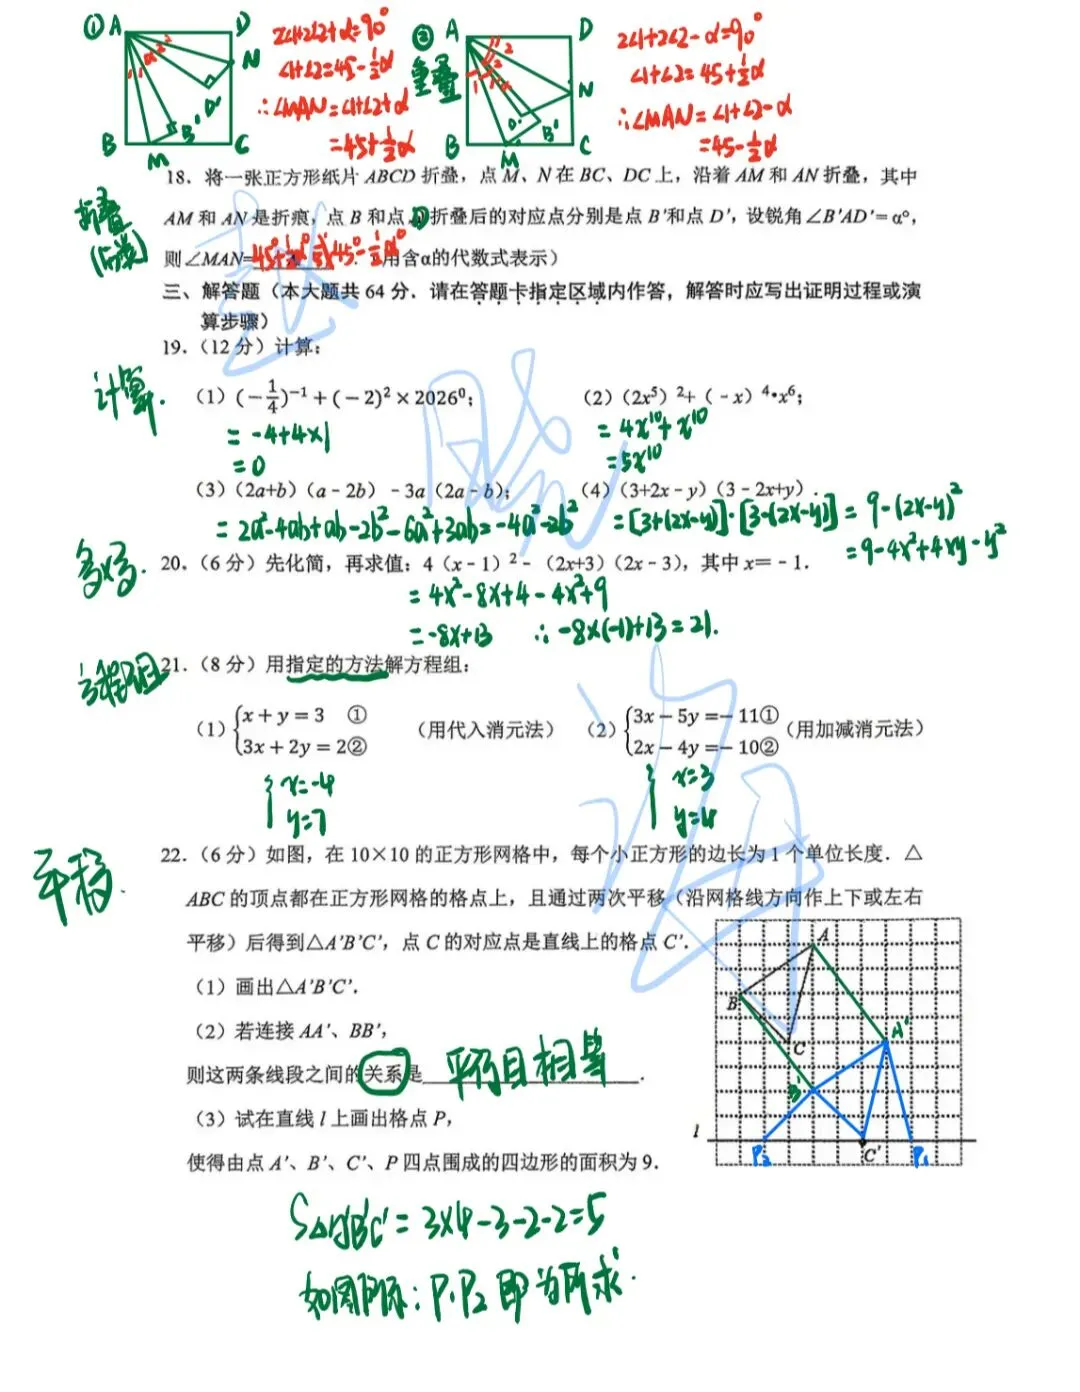 ① A D 2∠1+2∠2+α=90° ② A D 2∠1+2∠2-α=90°
重叠
∠1+∠2=45-½α ∠1+∠2=45+½α
N N
∴∠MAN=∠1+∠2+α ∴∠MAN=∠1+∠2-α
=45+½α =45-½α
B M B' D' C B M D' B' C
18．将一张正方形纸片 ABCD 折叠，点 M、N 在 BC、DC 上，沿着 AM 和 AN 折叠，其中
折叠
AM 和 AN 是折痕，点 B 和点 D 折叠后的对应点分别是点 B′和点 D′，设锐角∠B′AD′=α°，
则∠MAN=45°+½α°或45°-½α°．（用含α的代数式表示）
三、解答题（本大题共 64 分．请在答题卡指定区域内作答，解答时应写出证明过程或演
算步骤）
19．（12 分）计算：
计算.
（1）(−1/4)⁻¹+(−2)²×2026⁰； （2）（2x⁵）²+（-x）⁴•x⁶；
= -4+4×1 = 4x¹⁰+x¹⁰
=0 =5x¹⁰
（3）（2a+b）（a-2b）-3a（2a-b）； （4）（3+2x-y）（3-2x+y）.
= 2a²-4ab+ab-2b²-6a²+3ab=-4a²-2b² =[3+(2x-y)]·[3-(2x-y)] = 9-(2x-y)²
=9-4x²+4xy-y²
20．（6 分）先化简，再求值：4（x-1）²-（2x+3）（2x-3），其中 x=-1．
= 4x²-8x+4-4x²+9
=-8x+13 ∴-8×(-1)+13=21.
方程组
21．（8 分）用指定的方法解方程组：
（1）{x+y=3 ① （用代入消元法） （2）{3x-5y=-11① （用加减消元法）
3x+2y=2② 2x-4y=-10②
{x=-4 {x=3
y=7 y=4
平移.
22．（6 分）如图，在 10×10 的正方形网格中，每个小正方形的边长为 1 个单位长度．△
ABC 的顶点都在正方形网格的格点上，且通过两次平移（沿网格线方向作上下或左右
平移）后得到△A′B′C′，点 C 的对应点是直线上的格点 C′．
（1）画出△A′B′C′．
（2）若连接 AA′、BB′，
则这两条线段之间的关系是平行且相等．
（3）试在直线 l 上画出格点 P，
使得由点 A′、B′、C′、P 四点围成的四边形的面积为 9．
A
B
C
A'
B'
l
P₂ C′ P₁
S△A'B'C' = 3×4-3-2-2=5
如图所示：P₁P₂即为所求.